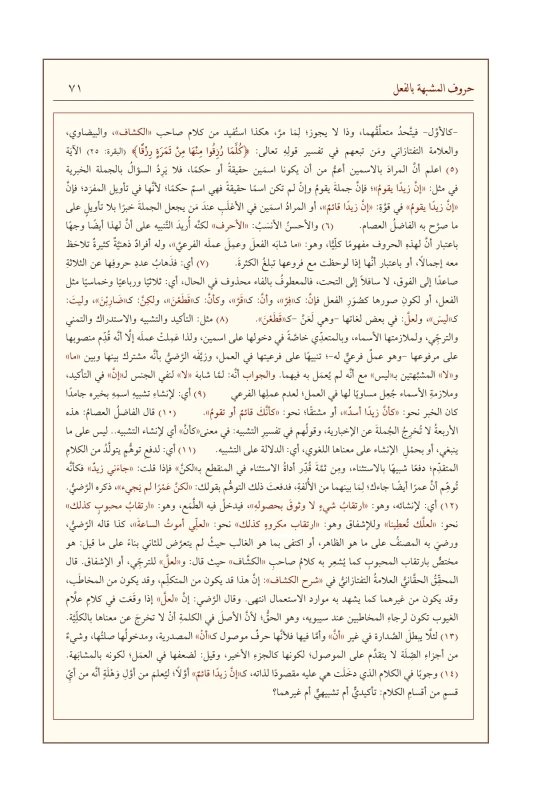 حروف المشبهة بالفعل ٧١
-كالأوَّل- فيتَّحدُ متعلّقُهما، وذا لا يجوز؛ لِمَا مرَّ، هكذا استُفيد من كلام صاحب «الكشاف»، والبيضاوي،
والعلامة التفتازاني ومَن تبعهم في تفسير قولِهِ تعالى: ﴿كُلَّمَا رُزِقُوا مِنْهَا مِنْ ثَمَرَةٍ رِزْقًا﴾ (البقرة: ٢٥) الآية
(٥) اعلم أنَّ المرادَ بالاسمين أعمُّ من أن يكونا اسمَين حقيقةً أو حكمًا، فلا يَرِدُ السؤالُ بالجملة الخبرية
في مثل: «إنَّ زيدًا يقومُ»؛ فإنَّ جملة يقومُ وإنْ لم تكن اسمًا حقيقةً فهي اسمٌ حكمًا؛ لأنَّها في تأويل المفرَد؛ فإنَّ
«إنَّ زيدًا يقومُ» في قوَّة: «إنَّ زيدًا قائمٌ»، أو المرادُ اسمَين في الأغلَبِ عندَ مَن يجعل الجملةَ خبرًا بلا تأويلٍ على
ما صرَّح به الفاضلُ العصام. (٦) والأحسنُ الأنسَبُ: «الأحرف» لكنَّه أُريدَ التَّنبيه على أنَّ لهذا أيضًا وجهًا
باعتبار أنَّ لهذهِ الحروف مفهومًا كلّيًّا، وهو: «ما شابَه الفعلَ وعمِلَ عملَه الفرعيَّ»، وله أفرادٌ ذهنيَّةٌ كثيرةٌ تلاحَظ
معه إجمالًا، أو باعتبار أنَّها إذا لوحظت مع فروعها تبلغُ الكثرةَ. (٧) أي: فذَهابُ عددِ حروفِها عن الثلاثةِ
صاعدًا إلى الفوق، لا سافلًا إلى التحت، فالمعطوفُ بالفاء محذوف في الحال، أي: ثلاثيًا ورباعيًا وخماسيًا مثل
الفعل، أو لكونِ صورها كصُوَرِ الفعل فإنَّ: كـ«فِرَّ»، وأنَّ: كـ«فَرَّ»، وكأنَّ: كـ«قَطَعْنَ»، ولكِنَّ: كـ«ضَارِبْنَ»، وليتَ:
كـ«ليسَ»، ولعلَّ: في بعض لغاتها -وهي لَعَنَّ -كـ«قَطَعْنَ». (٨) مثل: التأكيد والتشبيه والاستدراك والتمني
والترجّي، ولملازمتها الأسماء، وبالمتعدّي خاصَّةً في دخولها على اسمين، ولذا عَمِلتْ عملَه إلَّا أنَّه قُدِّم منصوبها
على مرفوعها -وهو عملٌ فرعيٌّ له-؛ تنبيهًا على فرعيتها في العمل، وزيَّفَه الرَّضيُّ بأنَّه مشترك بينها وبين «ما»
و«لا» المشبَّهتين بـ«ليس» مع أنَّه لم يُعمَل به فيهما. والجواب أنَّه: لمَّا شابهَ «لا» لنفي الجنس لـ«إنَّ» في التأكيد،
وملازمةِ الأسماء جُعِل مساويًا لها في العمل؛ لعدم عملِها الفرعي (٩) أي: لإنشاءِ تشبيهِ اسمِهِ بخبره جامدًا
كان الخبر نحو: «كأنَّ زيدًا أسدٌ»، أو مشتقًا؛ نحو: «كأنَّك قائمٌ أو تقومُ». (١٠) قال الفاضلُ العصامُ: هذه
الأربعةُ لا تُخرِجُ الجُملةَ عن الإخبارية، وقولُهم في تفسيرِ التشبيه: في معنى«كأنَّ» أي لإنشاء التشبيه.. ليس على ما
ينبغي، أو بحَمْلِ الإنشاء على معناها اللغوي، أي: الدلالة على التشبيه. (١١) أي: لدفع توهُّمٍ يتولَّدُ من الكلامِ
المتقدِّم؛ دفعًا شبيهًا بالاستثناء، ومِن ثمَّةَ قُدِّر أداةُ الاستثناء في المنقطع بـ«لكنَّ» فإذا قلت: «جاءَني زيدٌ» فكأنَّه
تُوهِّم أنَّ عمرًا أيضًا جاءك؛ لِمَا بينهما من الأُلفةِ، فدفعتَ ذلك التوهُّم بقولك: «لكنَّ عَمْرًا لم يَجيء»، ذكره الرَّضيُّ.
(١٢) أي: لإنشائه، وهو: «ارتقابُ شيءٍ لا وثوقَ بحصولِهِ»، فيدخلُ فيه الطَّمع، وهو: «ارتقابُ محبوبٍ كذلك»
نحو: «لعلَّك تُعطينا» وللإشفاق وهو: «ارتقاب مكروهٍ كذلك» نحو: «لعلّي أموتُ الساعةَ»، كذا قاله الرَّضيُّ،
ورضيَ به المصنفُ على ما هو الظاهر، أو اكتفى بما هو الغالب حيثُ لم يتعرَّض للثاني بناءً على ما قيل: هو
مختصٌّ بارتقاب المحبوب كما يُشعِر به كلامُ صاحب «الكشَّاف» حيث قال: و«لعلَّ» للترجِّي، أو الإشفاق. قال
المحقّقُ الحقَّانيُّ العلامةُ التفتازانيُّ في «شرح الكشاف»: إنَّ هذا قد يكون من المتكلِّم، وقد يكون من المخاطَب،
وقد يكون من غيرهما كما يشهد به موارد الاستعمال انتهى. وقال الرَّضي: إنَّ «لعلَّ» إذا وقعَت في كلام علَّام
الغيوب تكون لرجاءِ المخاطبين عند سيبويه، وهو الحقُّ؛ لأنَّ الأصلَ في الكلمةِ أنْ لا تخرجَ عن معناها بالكلّيَّة.
(١٣) لئلَّا يبطُلَ الصَّدارة في غير «أنَّ» وأمَّا فيها فلأنَّها حرفُ موصول كـ«أنْ» المصدرية، ومدخولُها صلتُها، وشيءٌ
من أجزاءِ الصِّلَة لا يتقدَّم على الموصول؛ لكونها كالجزءِ الأخير، وقيل: لضَعفها في العمَل؛ لكونه بالمشابَهة.
(١٤) وجوبًا في الكلام الذي دخَلَت هي عليه مقصودًا لذاته، كـ«إنَّ زيدًا قائمٌ» أوَّلًا؛ ليُعلمَ من أوَّلِ وَهْلَةٍ أنَّه من أيِّ
قسمٍ من أقسامِ الكلام: تأكيديٌّ أم تشبيهيٌّ أم غيرهما؟